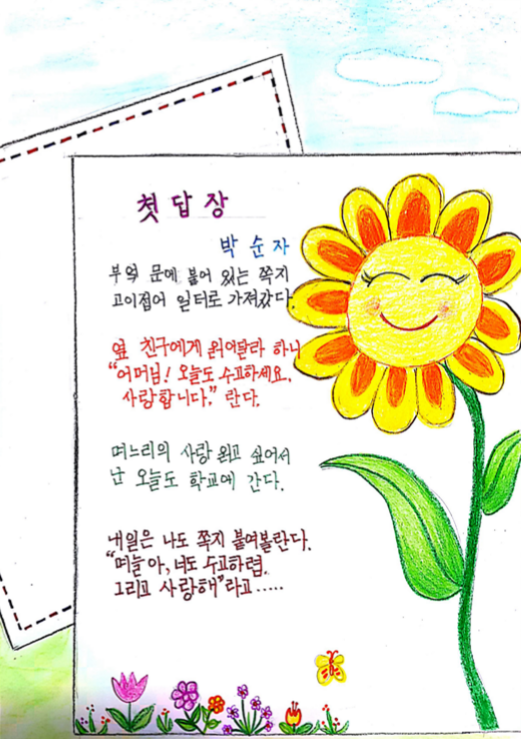 첫 답 장
박 순 자
부엌 문에 붙어 있는 쪽지
고이접어 일터로 가져갔다.
옆 친구에게 읽어달라 하니
"어머님! 오늘도 수고하세요.
사랑합니다." 란다.
며느리의 사랑 읽고 싶어서
난 오늘도 학교에 간다.
내일은 나도 쪽지 붙여볼란다.
"며늘 아, 너도 수고하렴.
그리고 사랑해"라고.....